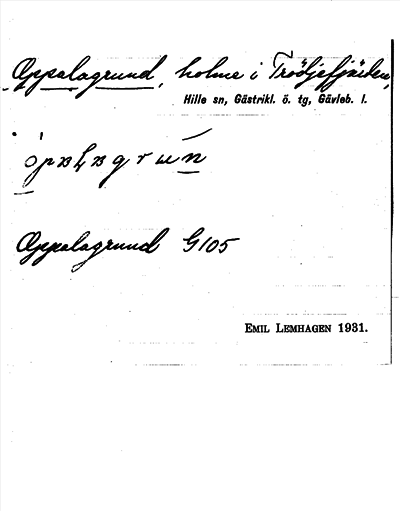 Oppalagrund, holme i Trösljefjärden,
Hille sn, Gästrikl. ö. tg, Gävleb. l.
Oppalagrund G105
EMIL LEMHAGEN 1931.